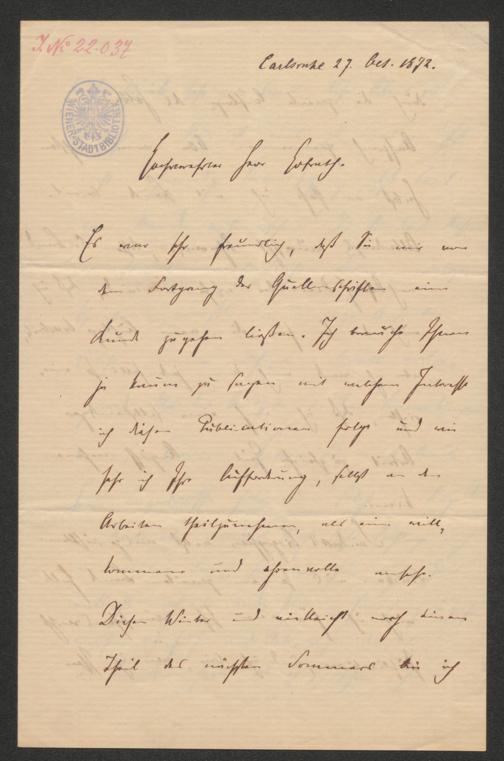 J. N° 22.037
WIENER STADTBIBLIOTHEK
Carlsruhe 27. Oct. 1872.
Hochverehrter Herr Hofrath.
Es war sehr freundlich, daß Sie mir von
dem Fortgang der Quellenschriften eine
Kunde zugehen ließen. Ich brauche Ihnen
ja kaum zu sagen, mit welchem Interesse
ich diesen Publicationen folge und wie
sehr ich Ihre Aufforderung, selbst an den
Arbeiten theilzunehmen, als eine will-
kommene und ehrenvolle ansehe.
Diesen Winter und vielleicht noch einen
Theil des nächsten Sommers bin ich